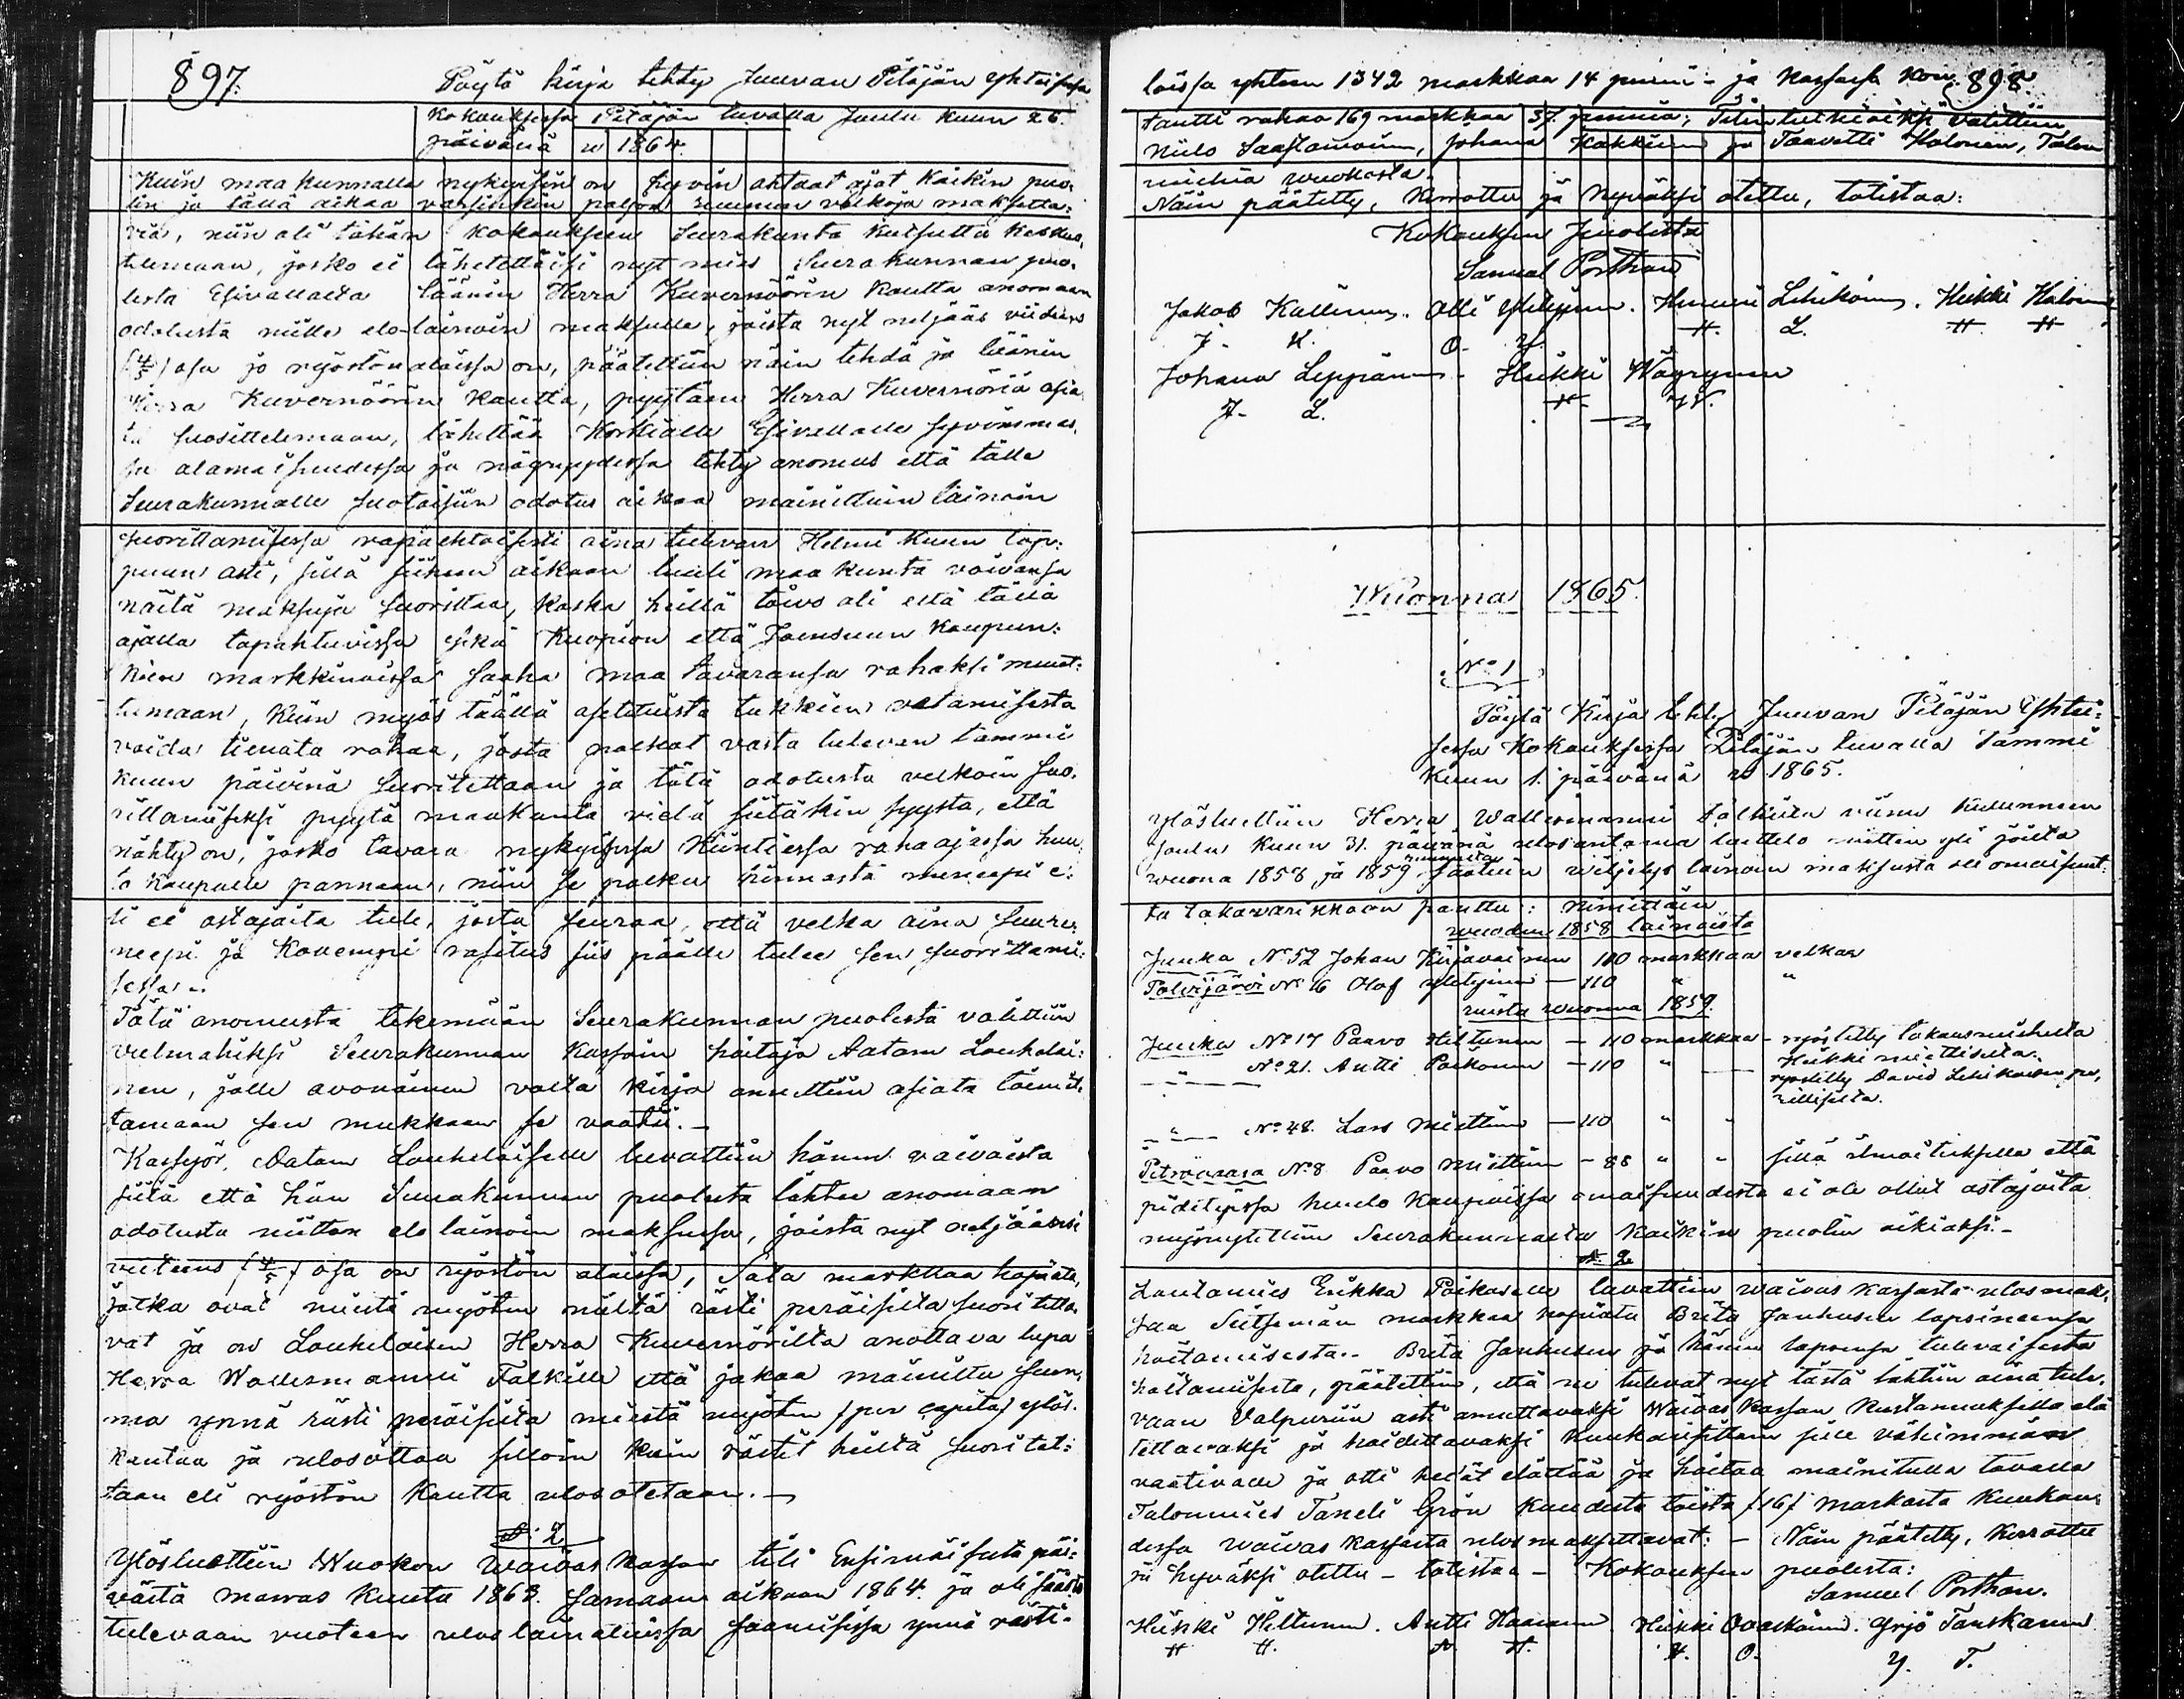 897.
Pöytä kirja tehty Juuvan Pitäjän yhteisessä
kokouksessa Pitäjän tuvalla Joulu kuun 26.
päivänä w 1864.
Kuin maakunnalla nykyisin on hyvin ahtaat ajat kaikin puo-
lin ja tällä aikaa varsinkin paljon summan velkoja maksetta-
via, niin oli tähän kokouksen Seurakunta kutsuttu keskus-
telemaan, josko ei lähetettäisi nyt mies Seurakunnan puo-
lesta Esivallalta läänin Herra Kuvernöörin kautta anomaan
odotusta niille elo lainoin maksulle, joista nyt neljääs viides
(4/5) osa jo ryöstön alaissa on, päätettiin näin tehdä ja läänin
Herra Kuvernöörin kautta, pyytäen Herra Kuvernöriä asia-
ta suosittelemaan, lähettää Korkialle Esivallalle syvimmäs-
sä alamaisuudessa ja nöyryydessä tehty anomus että tälle
Seurakunnalle suotaisiin odotus aikaa mainittuin lainoin
suorittamisessa vapaehtoisesti aina tulevan Helmi kuun lop-
puun asti, sillä siihen aikaan luuli maakunta voivansa
näitä maksuja suorittaa, koska heillä toivo oli että tällä
ajalla tapahtuvissa sekä Kuopion että Joensuun kaupun-
kien markkinoissa saaha maa tavaransa rahaksi muut-
tumaan, kuin myös täällä asetetuista tukkien vetämisestä
voida tienata rahaa, josta palkat vasta tulevan tammi
kuun päivinä suoritettaan ja tätä odotusta velkoin suo-
rittamiseksi pyytä maakunta vielä siitäkin syystä, että
nähty on, josko tavara nykyisessä kiintiessä raha ajassa huu-
to kaupalle pannaan, niin se polku hinnasta meneepi e-
li ei ostajaita tule, josta seuraa, että velka aina suure-
neepi ja kovempi rasitus siis päälle tulee sen suorittami-
sessa.
Tätä anomusta tekemään Seurakunnan puolesta valittiin
valmahiksi Seurakunnan kassöin hoitaja Aatam Louhelai-
nen, jolle avonainen valta kirja annettiin asiata toimit-
tamaan sen mukkaan se vaatii.
Kassyör Aatam Louhelaiselle luvattiin hänen vaivaista
siitä että hän Seurakunnan puolesta lähtee anomaan
odotusta niitten elo lainoin maksussa, joista nyt neljäänsi
viiteens (4/5) osa on ryöstön alaissa, Sata markkaa hopiata,
jotka ovat miestä myöten niiltä rästi peräisiltä suoritetta-
vat ja on Louhelaisen Herra Kuvernöriltä anottava lupa
Herra Wallesmannii Falkille että jakaa mainittu sum-
ma ynnä rästi peräisiltä miestä myöten (per capita) ylös-
kantaa ja ulosottaa silloin kuin rästit heiltä suoritet-
taan eli ryöstön kautta ulos otetaan.
§. 2.
Ylösluettiin Wuokon Waivas kassan tili Ensimäisestä päi-
västä marras kuuta 1863. samaan aikaan 1864. ja oli säästö
tulevaan vuoteen ulos lainatuissa saamisissa ynnä rästi-
898.
löissä yhteen 1342 markkaa 14 penniä - ja kassassa
tantti rahaa 169 markkaa 37. penniä; Tilin tutkioiksi valittiin
Niilo Saastamoinen, Johana Kakkinen ja Taavetti Halonen, Talon
miehiä wuokosta.
Näin päätetty, kerrottu ja hyväksi otettu, totistaa:
Kokouksen puolesta
Samuel Porthan
Jakob Kallinen. Olli Ylitynen. Hemmi Lehikoinen. Heikki Halonen
J. K. O. Y. H. L. H. H.
Johana Leppänen - Heikki Wäyrynen
J. L. H. W.
Wuonna 1865.
N:o 1
Pöytä Kirja tehty Juuvan Pitäjän Yhtei-
sessä Kokouksessa Pitäjän tuvalla Tammi
kuun 1. päivänä w 1865.
Ylösluettiin Herra Wallesmanni Falkilta viime kuluneen
joulu kuun 31. päivänä ulosantama luettelo niitten yli joilta
wuona 1858 ja 1859 saatuin viljelys lainoin maksusta oli omaisuut-
ta takavarikkoon pantu: nimittäin
wuoden 1858 lainoista
Juuka N:o 52 Johan Kirjavainen 110 markkaa velkaa
Polvijärvi N:o 16 Olof Ylitynen - 110 " "
niistä wuonna 1859.
Juuka N:o 17 Paavo Hiltunen - 110 markkaa - ryöstetty takausmieheltä
Heikki miettiseltä.
- " - N:o 21. Antti Paikonen - 110 " - ryöstetty David Lehikoisen pe-
rillisiltä.
- " - N:o 48. Lars Miettinen - 110 " "
Petrovaara N:o 8 Paavo Miettinen - 88 " " sillä ilmoituksella että
pidetyissä huuto kaupoissa omaisuudesta ei ole ollut ostajoita
myönnyttiin Seurakunnalta kaikin puolin oikiaksi.
§. 2
Lautamies Erikka Paikoselle luvattiin waivas kassasta ulos mak-
saa Seitsemän markkaa hopiata Brita Janhusen lapsineensa
hoitamisesta. Brita Janhusen ja hänen lapsensa tulevaisesta
hoitamisesta, päätettiin, että ne tulevat nyt tästä lähtiin aina tule-
vaan Valpuriin asti annettavaksi Waivas kassan kustannuksilla elä-
tettavaksi ja hoidettavaksi kuukausittain sille vähimmän
vaativalle ja otti heidät elättää ja hoitaa mainitulla tavalla
Talonmies Taneli Grön kuudesta toista (16) markasta kuukau-
dessa waivas kassasta ulos maksettavat: - Näin päätetty, kerrottu
ja hyväksi otettu - totistaa - Kokouksen puolesta:
Samuel Porthan.
Heikki Hiltunen. Antti Haaranen Heikki Ovaskainen. Yrjö Tanskanen
H H. A H. H. O. Y. T.